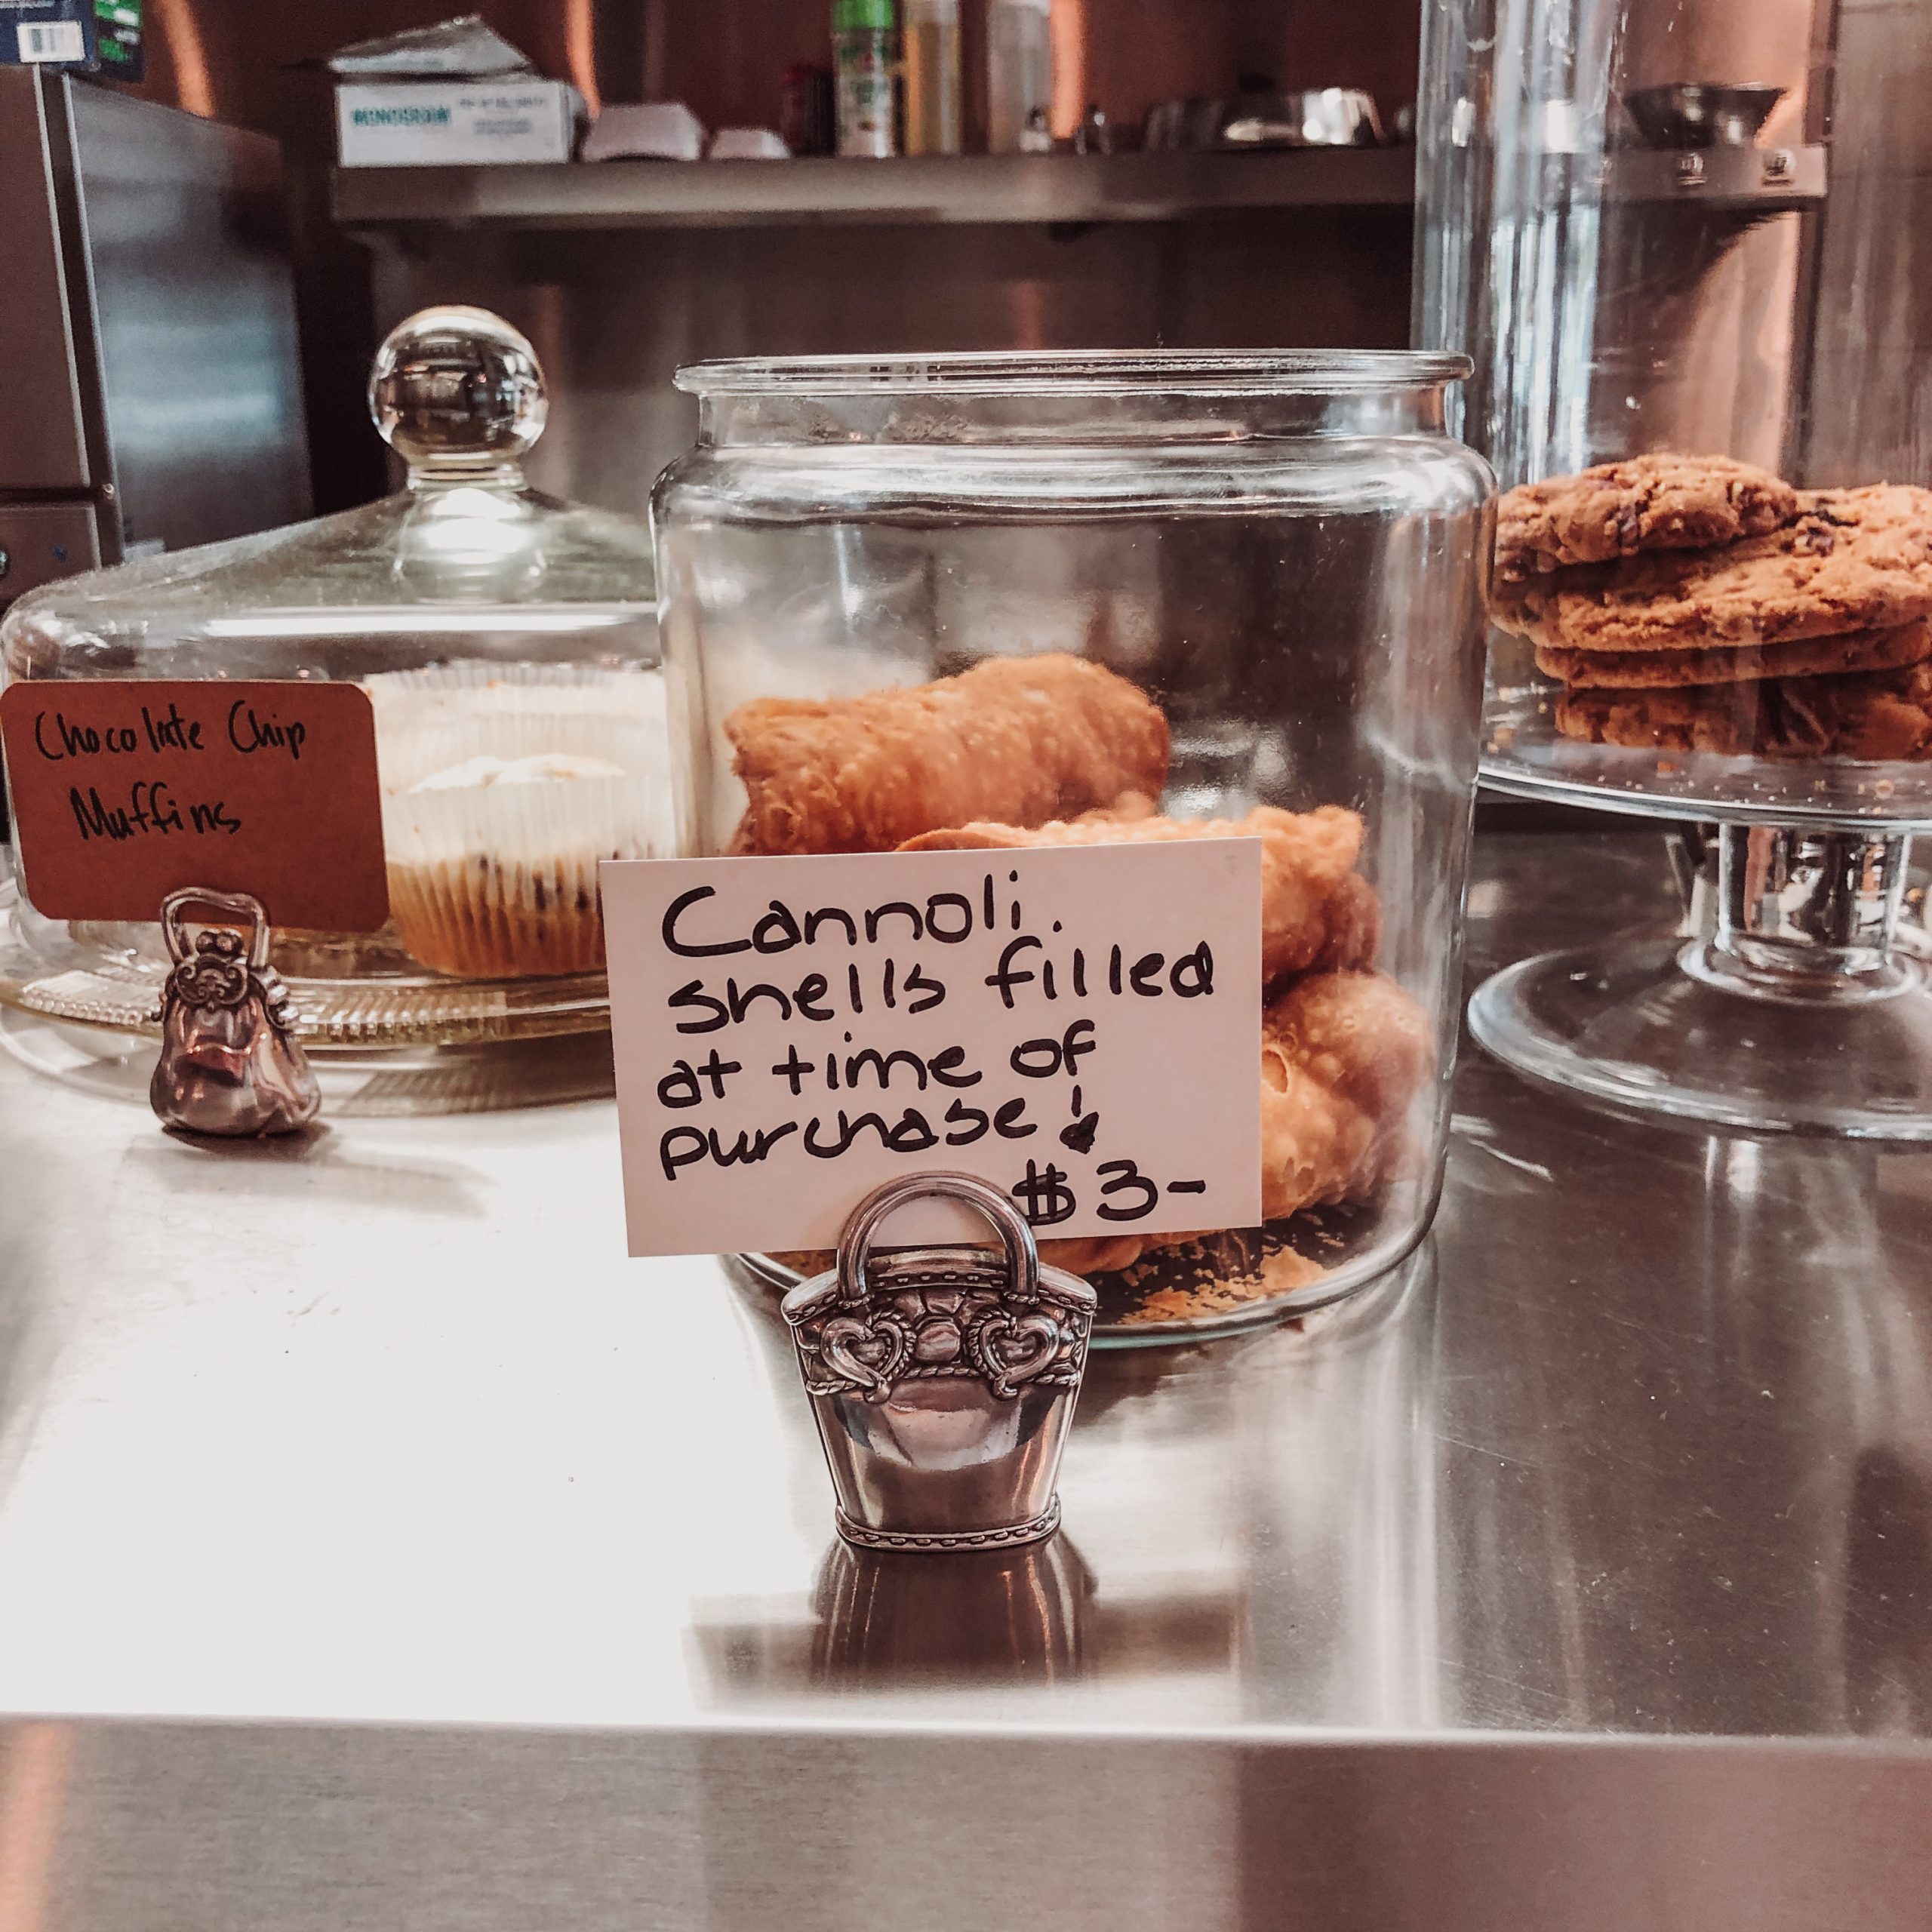 MONOGRAM
Chocolate Chip
Muffins
Cannoli.
shells filled
at time of
purchase!
$3-